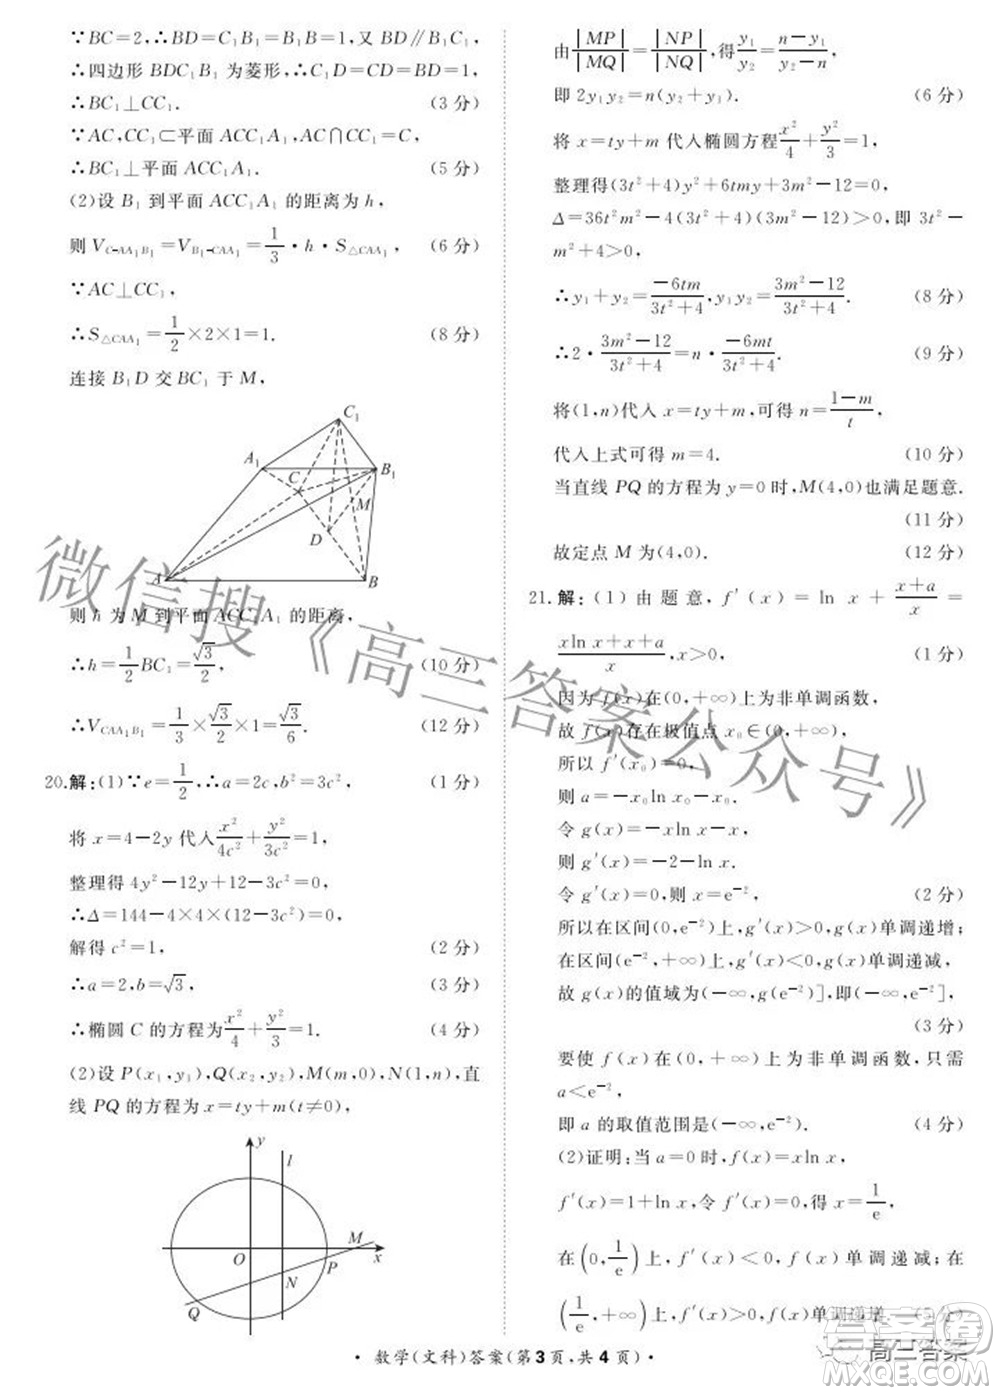 ∵BC=2,∴BD=C₁B₁=BB₁=1,又 BD∥B₁C₁,
∴四边形 BDC₁B₁ 为菱形,∴C₁D=CD=BD=1,
∴BC₁⊥CC₁. (3 分)
∵AC,CC₁⊂平面 ACC₁A₁,AC∩CC₁=C,
∴BC₁⊥平面 ACC₁A₁. (5 分)
(2)设 B₁ 到平面 ACC₁A₁ 的距离为 h,
则 V_{C-AA₁B₁}=V_{B₁-CAA₁}=1/3·h·S_{△CAA₁}, (6 分)
∵AC⊥CC₁,
∴S_{△CAA₁}=1/2×2×1=1. (8 分)
连接 B₁D 交 BC₁ 于 M,
C₁
A₁
C
B₁
M
D
A
B
则 h 为 M 到平面 ACC₁A₁ 的距离,
∴h=1/2 BC₁=√3/2, (10 分)
∴V_{CAA₁B₁}=1/3×√3/2×1=√3/6. (12 分)
20.解:(1)∵e=1/2,∴a=2c,b²=3c², (1 分)
将 x=4-2y 代入 x²/4c²+y²/3c²=1,
整理得 4y²-12y+12-3c²=0,
∴Δ=144-4×4×(12-3c²)=0,
解得 c²=1, (2 分)
∴a=2,b=√3, (3 分)
∴椭圆 C 的方程为 x²/4+y²/3=1. (4 分)
(2)设 P(x₁,y₁),Q(x₂,y₂),M(m,0),N(1,n),直
线 PQ 的方程为 x=ty+m(t≠0),
y
l
M
O
P
x
N
Q
由|MP|/|MQ|=|NP|/|NQ|,得 y₁/y₂=(n-y₁)/(y₂-n),
即 2y₁y₂=n(y₂+y₁). (6 分)
将 x=ty+m 代入椭圆方程 x²/4+y²/3=1,
整理得(3t²+4)y²+6tmy+3m²-12=0,
Δ=36t²m²-4(3t²+4)(3m²-12)>0,即 3t²-
m²+4>0,
∴y₁+y₂=-6tm/(3t²+4),y₁y₂=(3m²-12)/(3t²+4). (8 分)
∴2·(3m²-12)/(3t²+4)=n·-6mt/(3t²+4), (9 分)
将(1,n)代入 x=ty+m,可得 n=(1-m)/t,
代入上式可得 m=4. (10 分)
当直线 PQ 的方程为 y=0 时,M(4,0)也满足题意.
(11 分)
故定点 M 为(4,0). (12 分)
21.解:(1)由题意,f′(x)=ln x+(x+a)/x=
(xln x+x+a)/x,x>0, (1 分)
因为 f(x)在(0,+∞)上为非单调函数,
故 f(x)存在极值点 x₀∈(0,+∞),
所以 f′(x₀)=0,
则 a=-x₀ln x₀-x₀.
令 g(x)=-xln x-x,
则 g′(x)=-2-ln x.
令 g′(x)=0,则 x=e⁻², (2 分)
所以在区间(0,e⁻²)上,g′(x)>0,g(x)单调递增;
在区间(e⁻²,+∞)上,g′(x)<0,g(x)单调递减,
故 g(x)的值域为(-∞,g(e⁻²)],即(-∞,e⁻²],
(3 分)
要使 f(x)在(0,+∞)上为非单调函数,只需
a<e⁻²,
即 a 的取值范围是(-∞,e⁻²). (4 分)
(2)证明:当 a=0 时,f(x)=xln x,
f′(x)=1+ln x,令 f′(x)=0,得 x=1/e,
在(0,1/e)上,f′(x)<0,f(x)单调递减;在
(1/e,+∞)上,f′(x)>0,f(x)单调递增. (5 分)
·数学(文科)答案(第3页,共4页)·
微信搜《高三答案公众号》
答案圈
高三答案